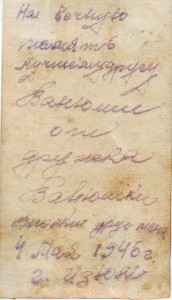 На вечную
память
лучшему другу
Ванюше
от
дружка
Ванюшки
4 Мая 1946 г.
г. Изюм